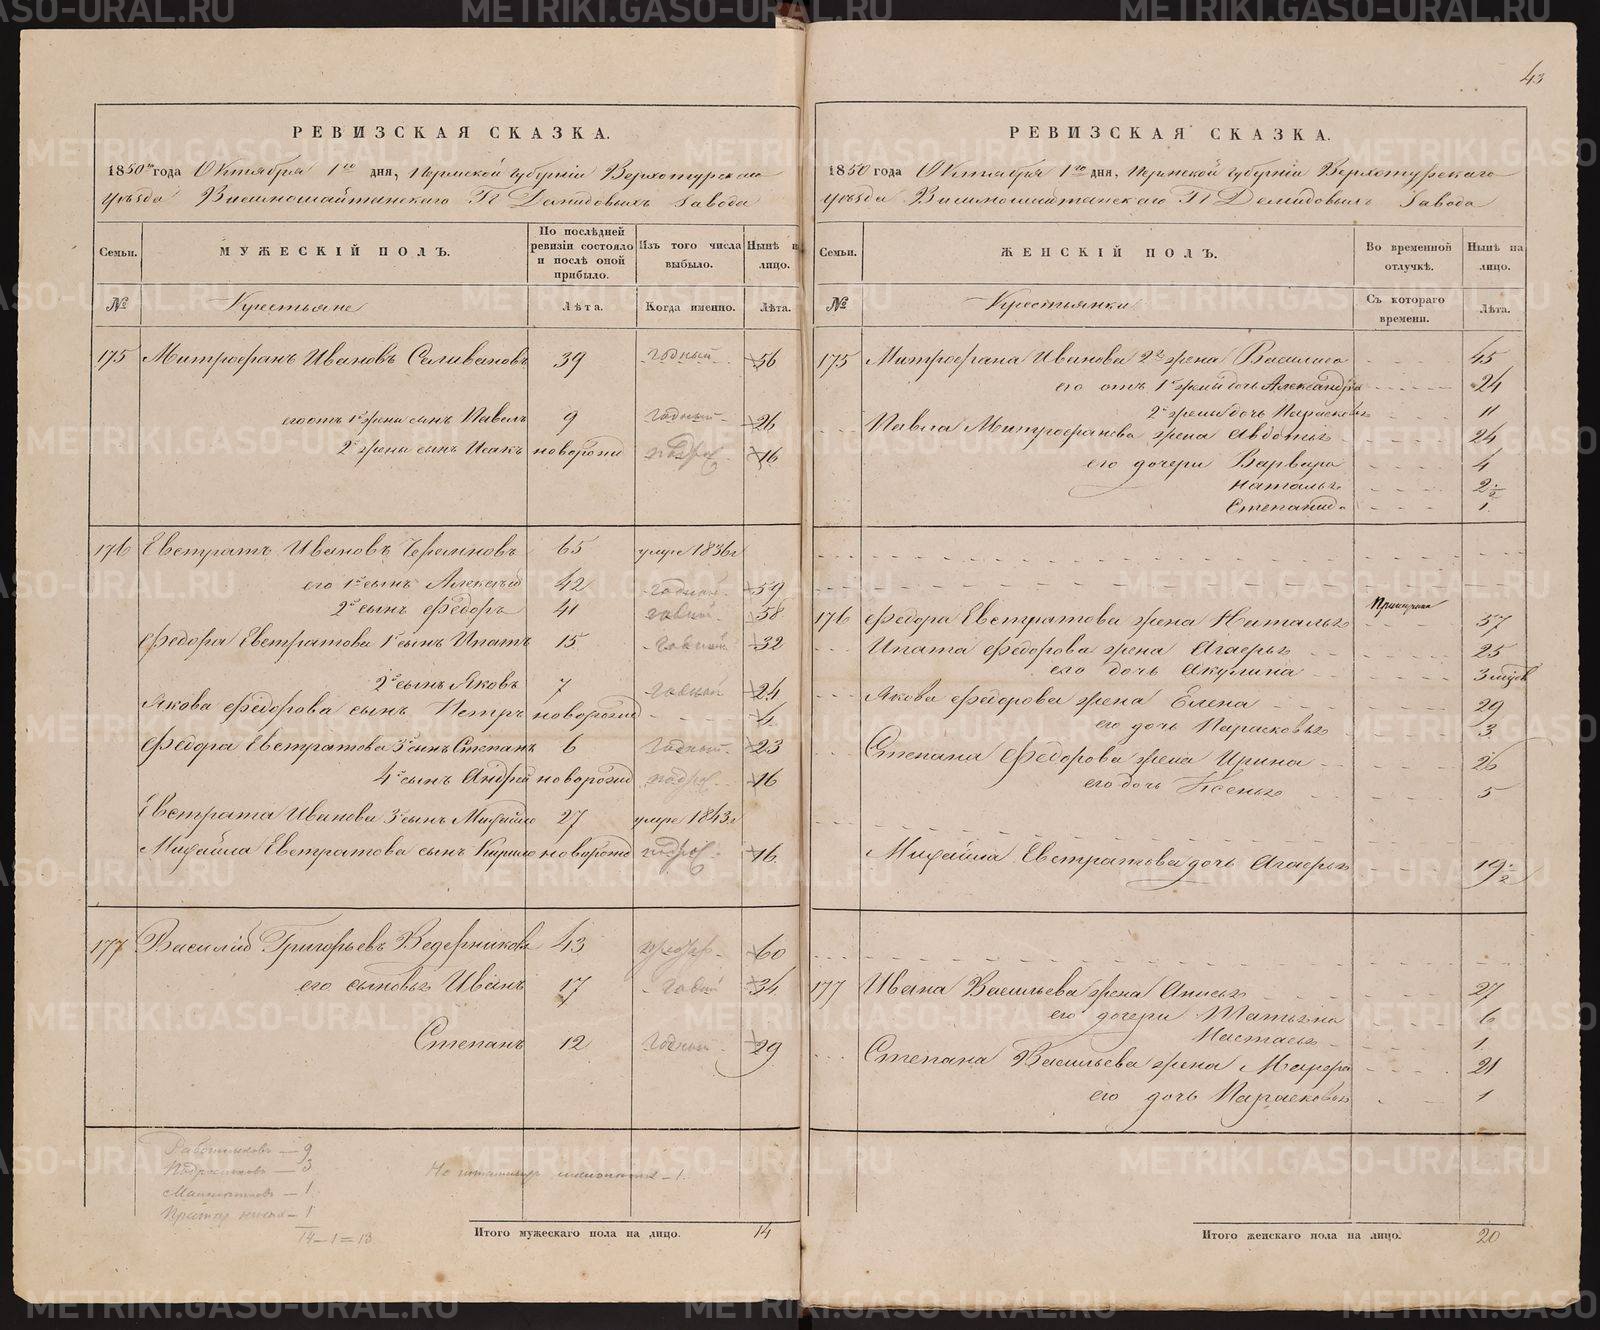 43
РЕВИЗСКАЯ СКАЗКА.
1850го года Октября 1го дня, Пермской губерніи Верхотурскаго
уѣзда Висимошайтанскаго Гг Демидовыхъ Завода
Семьи. МУЖЕСКІЙ ПОЛЪ. По послѣдней ревизіи состояло и послѣ оной прибыло. Изъ того числа выбыло. Нынѣ на лицо.
№ Крестьяне Лѣта. Когда именно. Лѣта.
175 Митрофанъ Ивановъ Селивановъ 39 годный 56
его отъ 1й жены сынъ Павелъ 9 годный 26
2й жены сынъ Исакъ новорожд подрос. 16
176 Евстратъ Ивановъ 65 умре 1836г
его 1й сынъ Алексѣй 42 годный 59
2й сынъ Федоръ 41 годный 58
Федора Евстратова 1й сынъ Ипатъ 15 годный 32
2й сынъ Яковъ 7 годный 24
Якова Федорова сынъ Петръ новорожд 4
Федора Евстратова 3й сынъ Степанъ 6 годный 23
4й сынъ Андрей новорожд подрос. 16
Евстрата Иванова 3й сынъ Михайло 27 умре 1843г
Михайла Евстратова сынъ Кирило новорожд подрос. 16
177 Василій Григорьевъ Ведерниковъ 43 60
его сыновья Иванъ 17 годный 34
Степанъ 12 годный 29
Работниковъ — 9
Подростковъ — 3
Малолетковъ — 1
— 1
14 – 1 = 13
– 1.
Итого мужескаго пола на лицо. 14
РЕВИЗСКАЯ СКАЗКА.
1850 года Октября 1го дня, Пермской губерніи Верхотурскаго
уѣзда Висимошайтанскаго Гг Демидовыхъ Завода
Семьи. ЖЕНСКІЙ ПОЛЪ. Во временной отлучкѣ. Нынѣ на лицо.
№ Крестьянки Съ котораго времени. Лѣта.
175 Митрофана Иванова 2я жена Василиса 45
его отъ 1й жены дочь Александра 24
2й жены дочь Парасковья 11
Павла Митрофанова жена Авдотья 24
его дочери Варвара 4
Наталья 2½
Степанида 1
176 Федора Евстратова жена Наталья 57
Ипата Федорова жена Агафья 25
его дочь Акулина 3 мѣсяц
Якова Федорова жена Елена 29
его дочь Парасковья 3
Степана Федорова жена Ирина 26
его дочь Ксенья 5
Михайла Евстратова дочь Агафья 19½
177 Ивана Васильева жена Анисья 27
его дочери Татьяна 6
Настасья 1
Степана Васильева жена Марфа 21
его дочь Парасковья 1
Итого женскаго пола на лицо. 20
METRIKI.GASO-URAL.RU